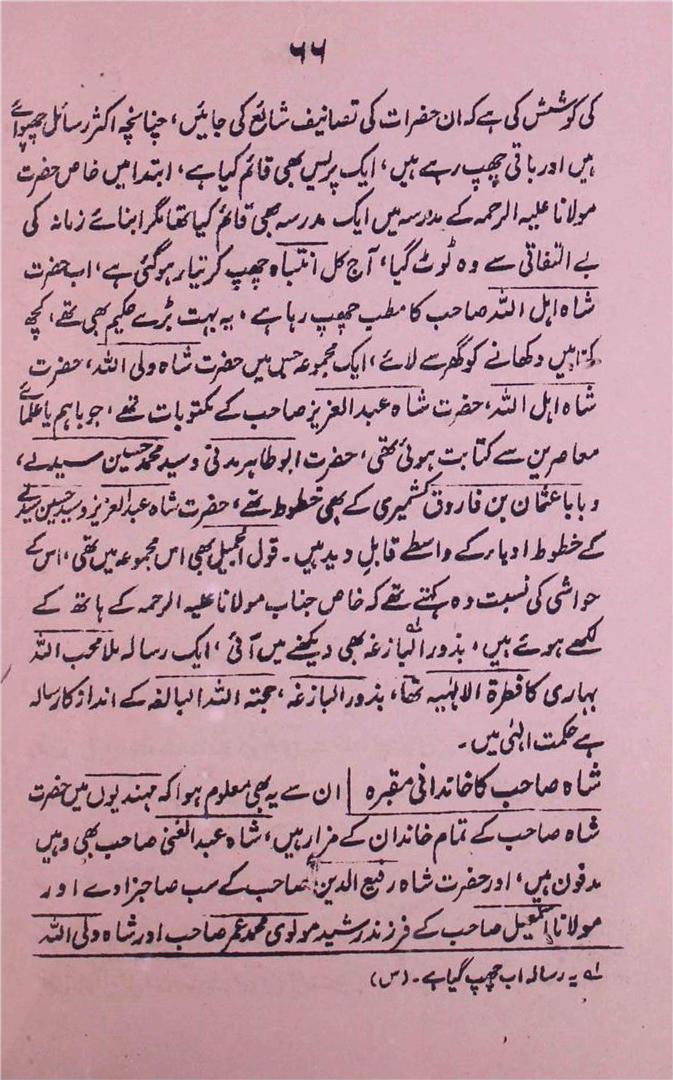 ۶۶
کی کوشش کی ہے کہ ان حضرات کی تصانیف شائع کی جائیں، چنانچہ اکثر رسائل چھپوائے
ہیں اور باقی چھپ رہے ہیں، ایک پریس بھی قائم کیا ہے، ابتدا میں خاص حضرت
مولانا علیہ الرحمہ کے مدرسہ میں ایک مدرسہ بھی قائم کیا تھا مگر ابنائے زمانہ کی
بے التفاتی سے وہ ٹوٹ گیا، آج کل انتباہ چھپ کر تیار ہو گئی ہے، اب حضرت
شاہ اہل اللہ صاحب کا مطب چھپ رہا ہے، یہ بہت بڑے حکیم بھی تھے، کچھ
کتابیں دکھانے کو گھر سے لائے، ایک مجموعہ جس میں حضرت شاہ ولی اللہ، حضرت
شاہ اہل اللہ، حضرت شاہ عبدالعزیز صاحب کے مکتوبات تھے، جو باہم یا علمائے
معاصرین سے کتابت ہوئی تھی، حضرت ابوطاہر مدنی و سید محمد حسین سیدنے،
و بابا عثمان بن فاروق کشمیری کے بھی خطوط تھے، حضرت شاہ عبدالعزیز و سید حسین
کے خطوط ادبار کے واسطے قابل دید ہیں۔ قول الجمیل بھی اس مجموعہ میں تھی، اس کے
حواشی کی نسبت وہ کہتے تھے کہ خاص جناب مولانا علیہ الرحمہ کے ہاتھ کے
لکھے ہوئے ہیں، بدور البازغہ بھی دیکھنے میں آئی، ایک رسالہ ملا محب اللہ
بہاری کا فطرۃ الالٰہیہ تھا، بدور البازغہ، حجتہ اللہ البالغہ کے انداز کا رسالہ
ہے حکمت الٰہی میں۔
شاہ صاحب کا خاندانی مقبرہ | ان سے یہ بھی معلوم ہوا کہ مہندیوں میں حضرت
شاہ صاحب کے تمام خاندان کے مزار ہیں، شاہ عبدالغنی صاحب بھی وہیں
مدفون ہیں، اور حضرت شاہ رفیع الدین صاحب کے سب صاحبزادے اور
مولانا اسمٰعیل صاحب کے فرزند رشید مولوی محمد عمر صاحب اور شاہ ولی اللہ
لہ یہ رسالہ اب چھپ گیا ہے۔ (س)